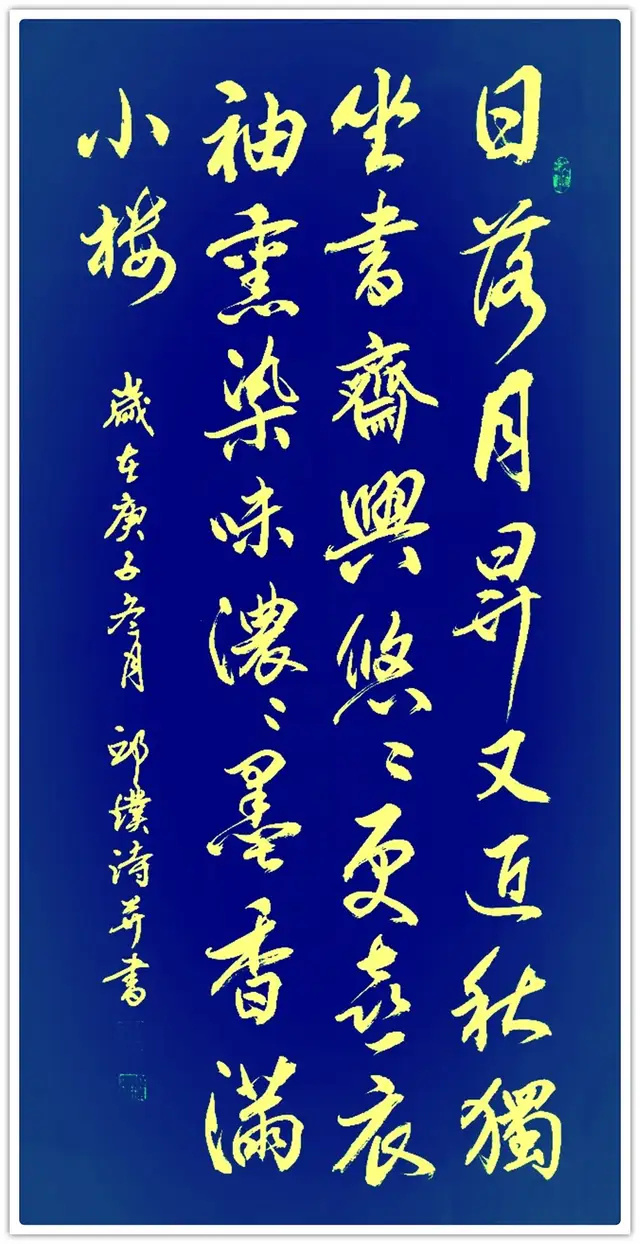 日落月昇又近秋獨
坐書齋興悠〻更喜衣
袖熏染味濃〻墨香滿
小楼
歲在庚子冬月 邱璞詩并書